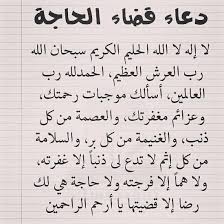 دعاء قضاء الحاجة
لا إله لا الله الحليم الكريم سبحان الله
رب العرش العظيم، الحمدلله رب
العالمين، أسألك موجبات رحمتك،
وعزائم مغفرتك، والعصمة من كل
ذنب، والغنيمة من كل بر، والسلامة
من كل إثم لا تدع لى ذنباً إلا غفرته،
ولا هماً إلا فرجته ولا حاجة هي لك
رضا إلا قضيتها يا أرحم الراحمين